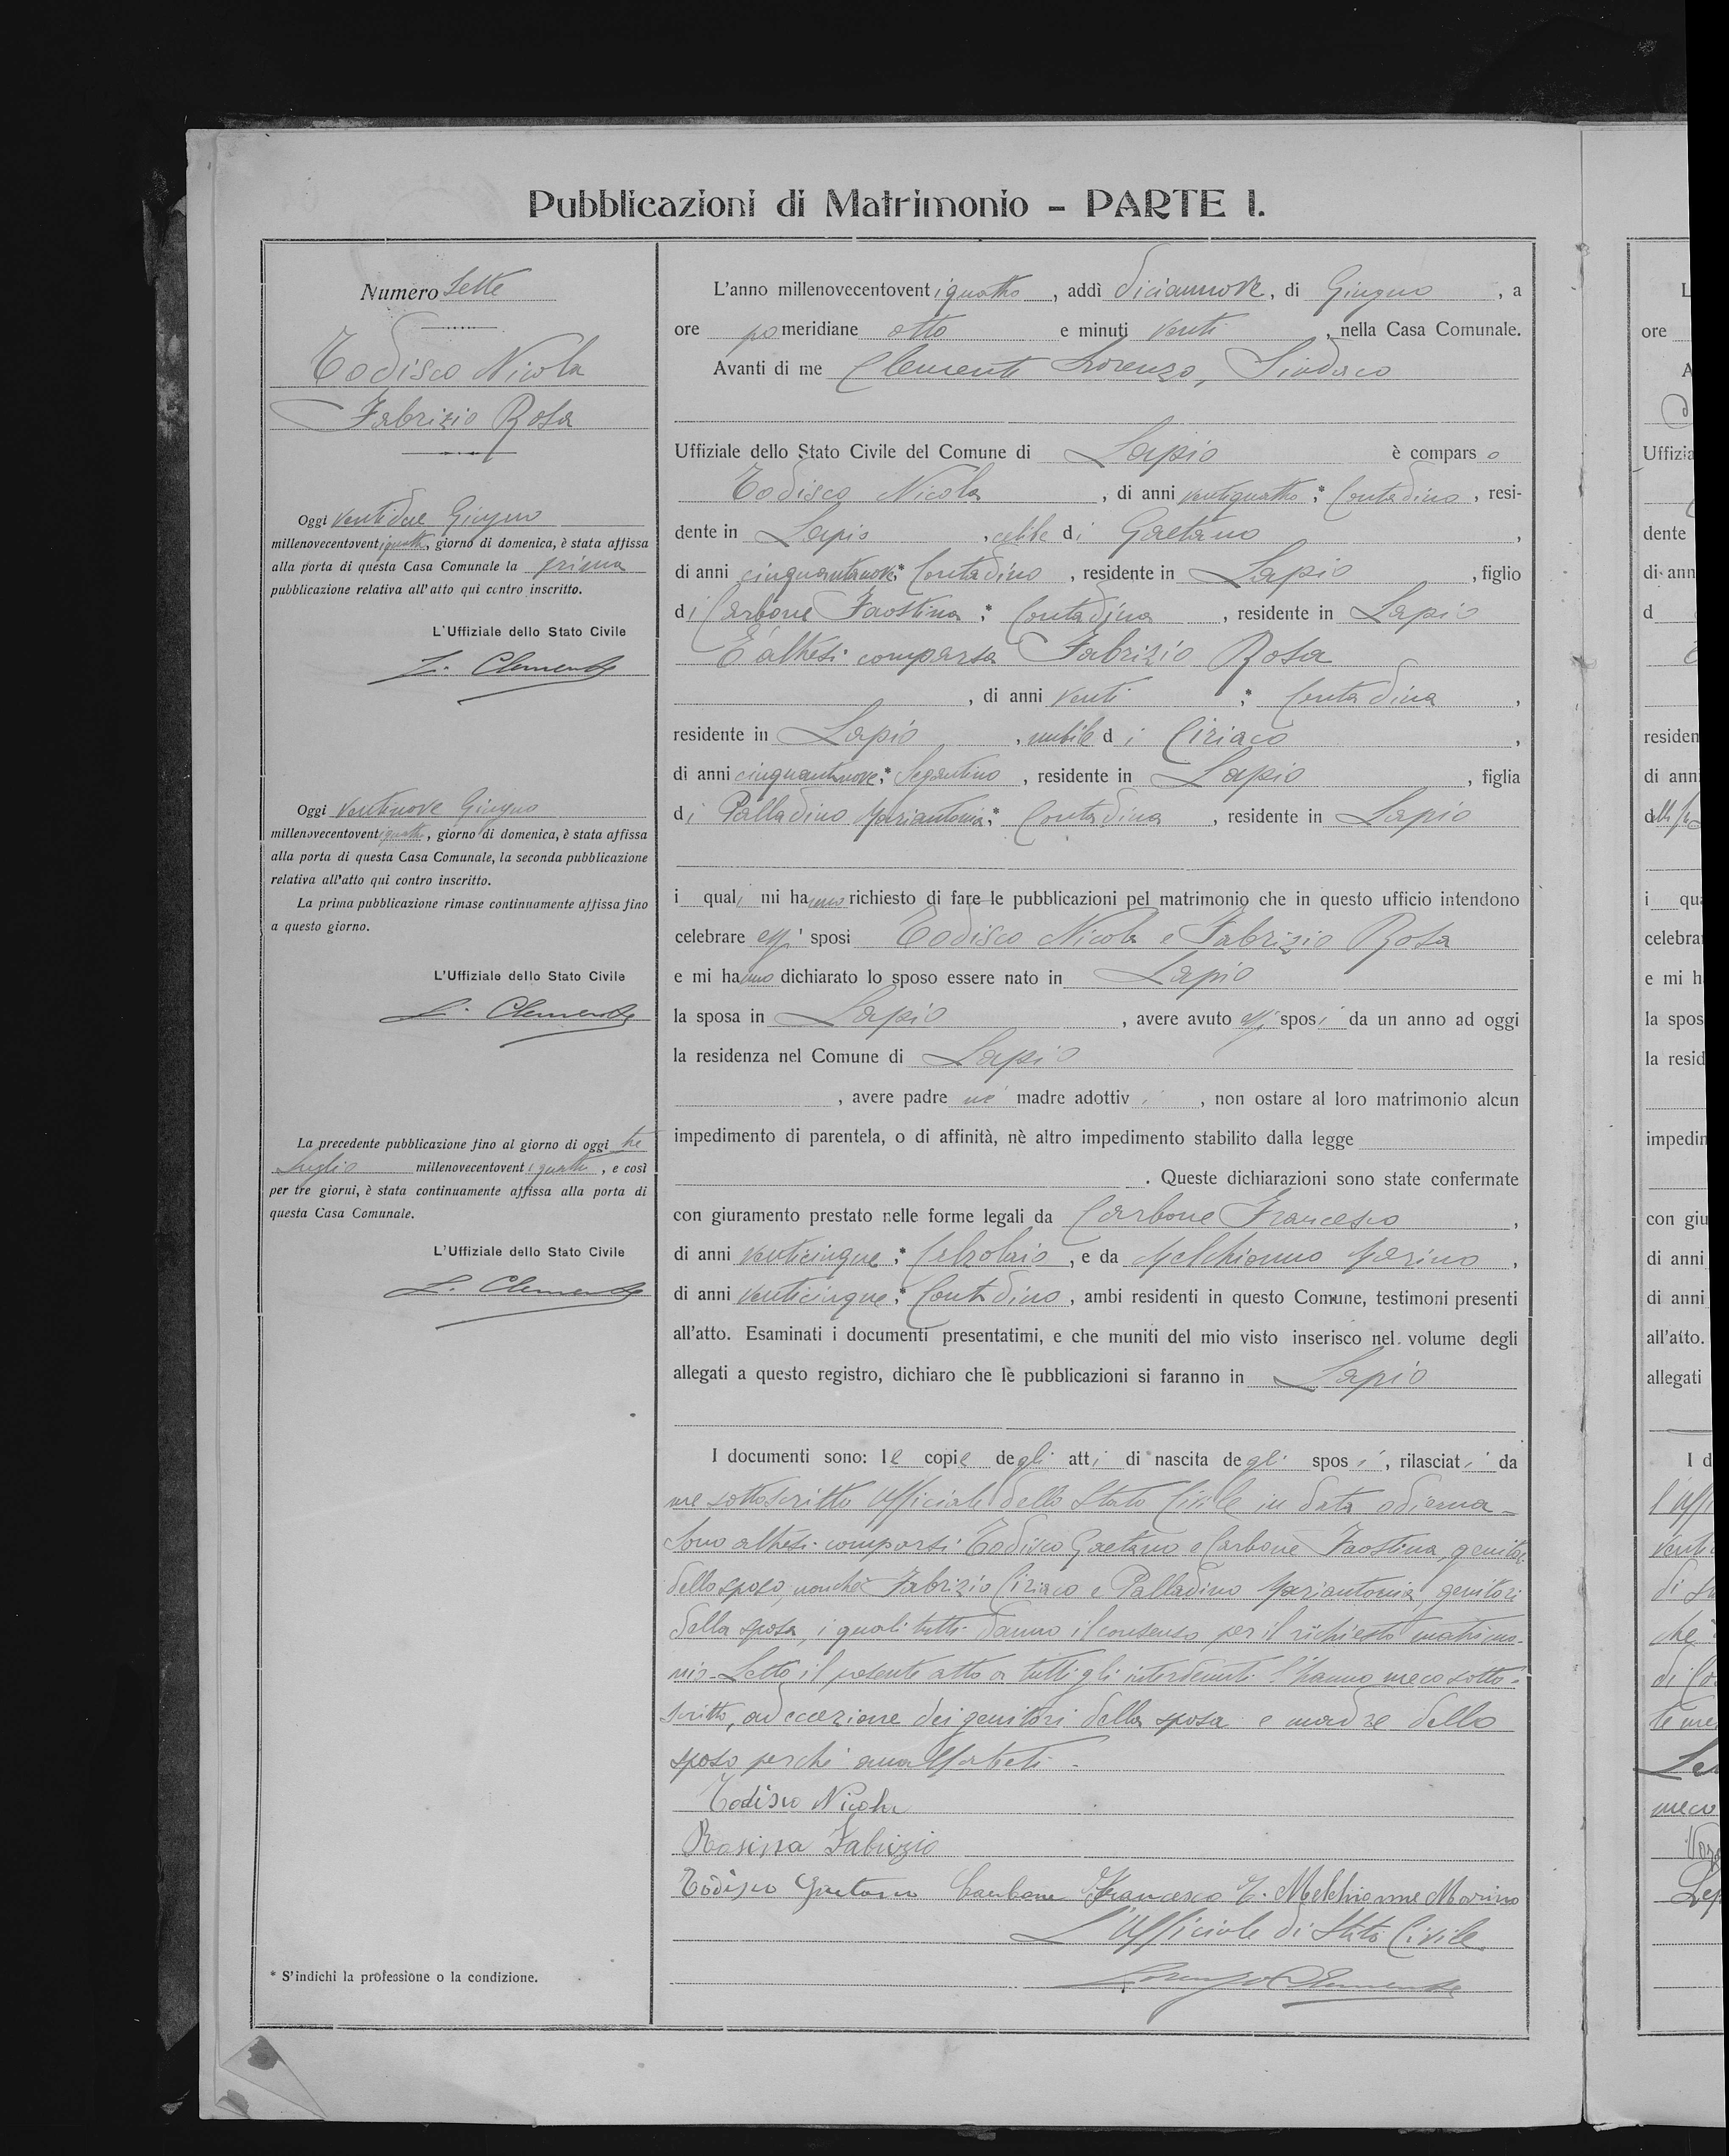 Pubblicazioni di Matrimonio - PARTE I.
Numero Sette
Todisco Nicola
Fabrizio Rosa
Oggi ventidue Giugno
millenovecentoventiquattro, giorno di domenica, è stata affissa
alla porta di questa Casa Comunale la prima
pubblicazione relativa all'atto qui contro inscritto.
L'Uffiziale dello Stato Civile
L. Clemente
Oggi ventinove Giugno
millenovecentoventiquattro, giorno di domenica, è stata affissa
alla porta di questa Casa Comunale, la seconda pubblicazione
relativa all'atto qui contro inscritto.
La prima pubblicazione rimase continuamente affissa fino
a questo giorno.
L'Uffiziale dello Stato Civile
L. Clemente
La precedente pubblicazione fino al giorno di oggi tre
Luglio millenovecentoventiquattro, e così
per tre giorni, è stata continuamente affissa alla porta di
questa Casa Comunale.
L'Uffiziale dello Stato Civile
L. Clemente
* S'indichi la professione o la condizione.
L'anno millenovecentoventiquattro, addì diciannove, di Giugno, a
ore pomeridiane otto e minuti venti, nella Casa Comunale.
Avanti di me Clemente Lorenzo, Sindaco
Uffiziale dello Stato Civile del Comune di Lapio è comparso
Todisco Nicola, di anni ventiquattro,* Contadino, resi-
dente in Lapio, celibe di Gaetano,
di anni cinquantanove,* Contadino, residente in Lapio, figlio
di Carbone Faostina,* Contadina, residente in Lapio
È altresì comparsa Fabrizio Rosa
, di anni venti,* Contadina,
residente in Lapio, nubile di Ciriaco,
di anni cinquantanove,* Segantino, residente in Lapio, figlia
di Palladino Mariantonia,* Contadina, residente in Lapio
i quali mi hanno richiesto di fare le pubblicazioni pel matrimonio che in questo ufficio intendono
celebrare essi sposi Todisco Nicola e Fabrizio Rosa
e mi hanno dichiarato lo sposo essere nato in Lapio
la sposa in Lapio, avere avuto essi sposi da un anno ad oggi
la residenza nel Comune di Lapio
, avere padre nè madre adottivi, non ostare al loro matrimonio alcun
impedimento di parentela, o di affinità, nè altro impedimento stabilito dalla legge
. Queste dichiarazioni sono state confermate
con giuramento prestato nelle forme legali da Carbone Francesco,
di anni venticinque,* Calzolaio, e da Melchionno Marino,
di anni venticinque,* Contadino, ambi residenti in questo Comune, testimoni presenti
all'atto. Esaminati i documenti presentatimi, e che muniti del mio visto inserisco nel volume degli
allegati a questo registro, dichiaro che le pubblicazioni si faranno in Lapio
I documenti sono: le copie degli atti di nascita degli sposi, rilasciati da
me sottoscritto Ufficiale dello Stato Civile in data odierna -
Sono altresì comparsi Todisco Gaetano e Carbone Faostina, genitori
dello sposo, nonchè Fabrizio Ciriaco e Palladino Mariantonia, genitori
della sposa, i quali tutti danno il consenso per il richiesto matrimo-
nio - Letto il presente atto a tutti gli intervenuti l'hanno meco sotto-
scritto, ad eccezione dei genitori della sposa e madre dello
sposo perchè analfabeti -
Todisco Nicola
Rosina Fabrizio
Todisco Gaetano Carbone Francesco T. Melchionne Marino
L'Ufficiale di Stato Civile
Lorenzo Clemente